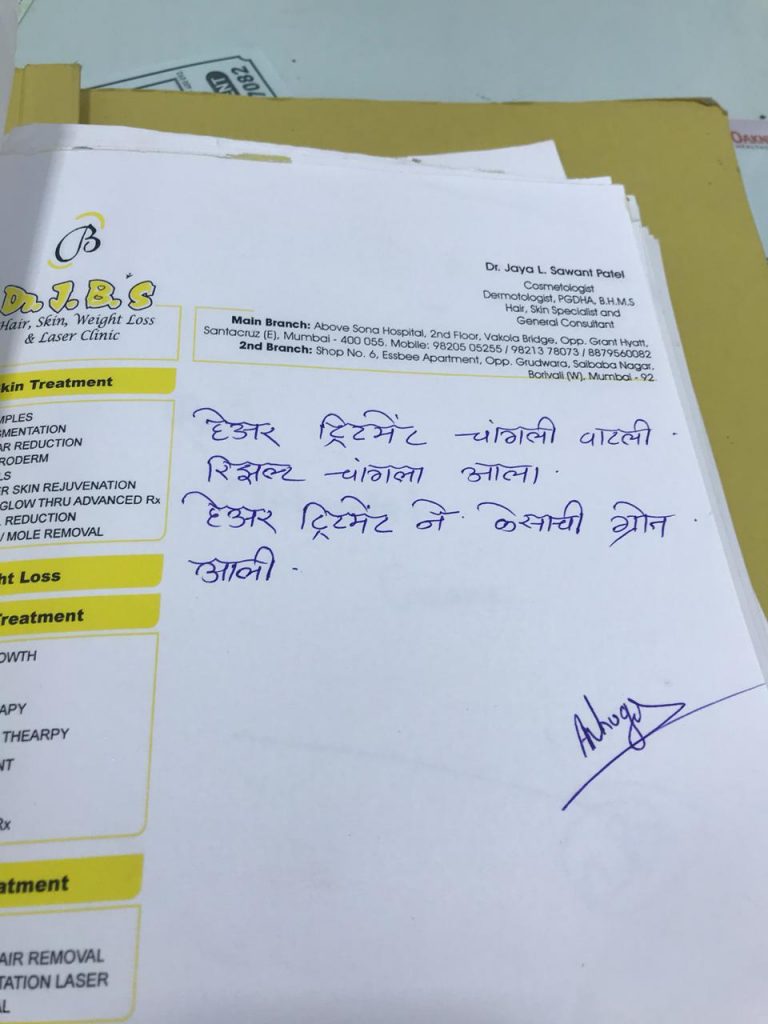 7082
OAKN
B
Dr. J. B.'s
Hair, Skin, Weight Loss
& Laser Clinic
Dr. Jaya L. Sawant Patel
Cosmetologist
Dermotologist, PGDHA, B.H.M.S
Hair, Skin Specialist and
General Consultant
Main Branch: Above Sona Hospital, 2nd Floor, Vakola Bridge, Opp. Grant Hyatt,
Santacruz (E), Mumbai - 400 055. Mobile: 98205 05255 / 98213 78073 / 8879560082
2nd Branch: Shop No. 6, Essbee Apartment, Opp. Grudwara, Saibaba Nagar,
Borivali (W), Mumbai - 92
kin Treatment
MPLES
GMENTATION
AR REDUCTION
RODERM
LS
R SKIN REJUVENATION
GLOW THRU ADVANCED Rx
REDUCTION
/ MOLE REMOVAL
ht Loss
Treatment
OWTH
APY
THEARPY
NT
Rx
atment
AIR REMOVAL
TATION LASER
AL
हेअर ट्रिटमेंट चांगली वाटली.
रिझल्ट चांगला आला.
हेअर ट्रिटमेंट ने केसाची ग्रोन
आली.